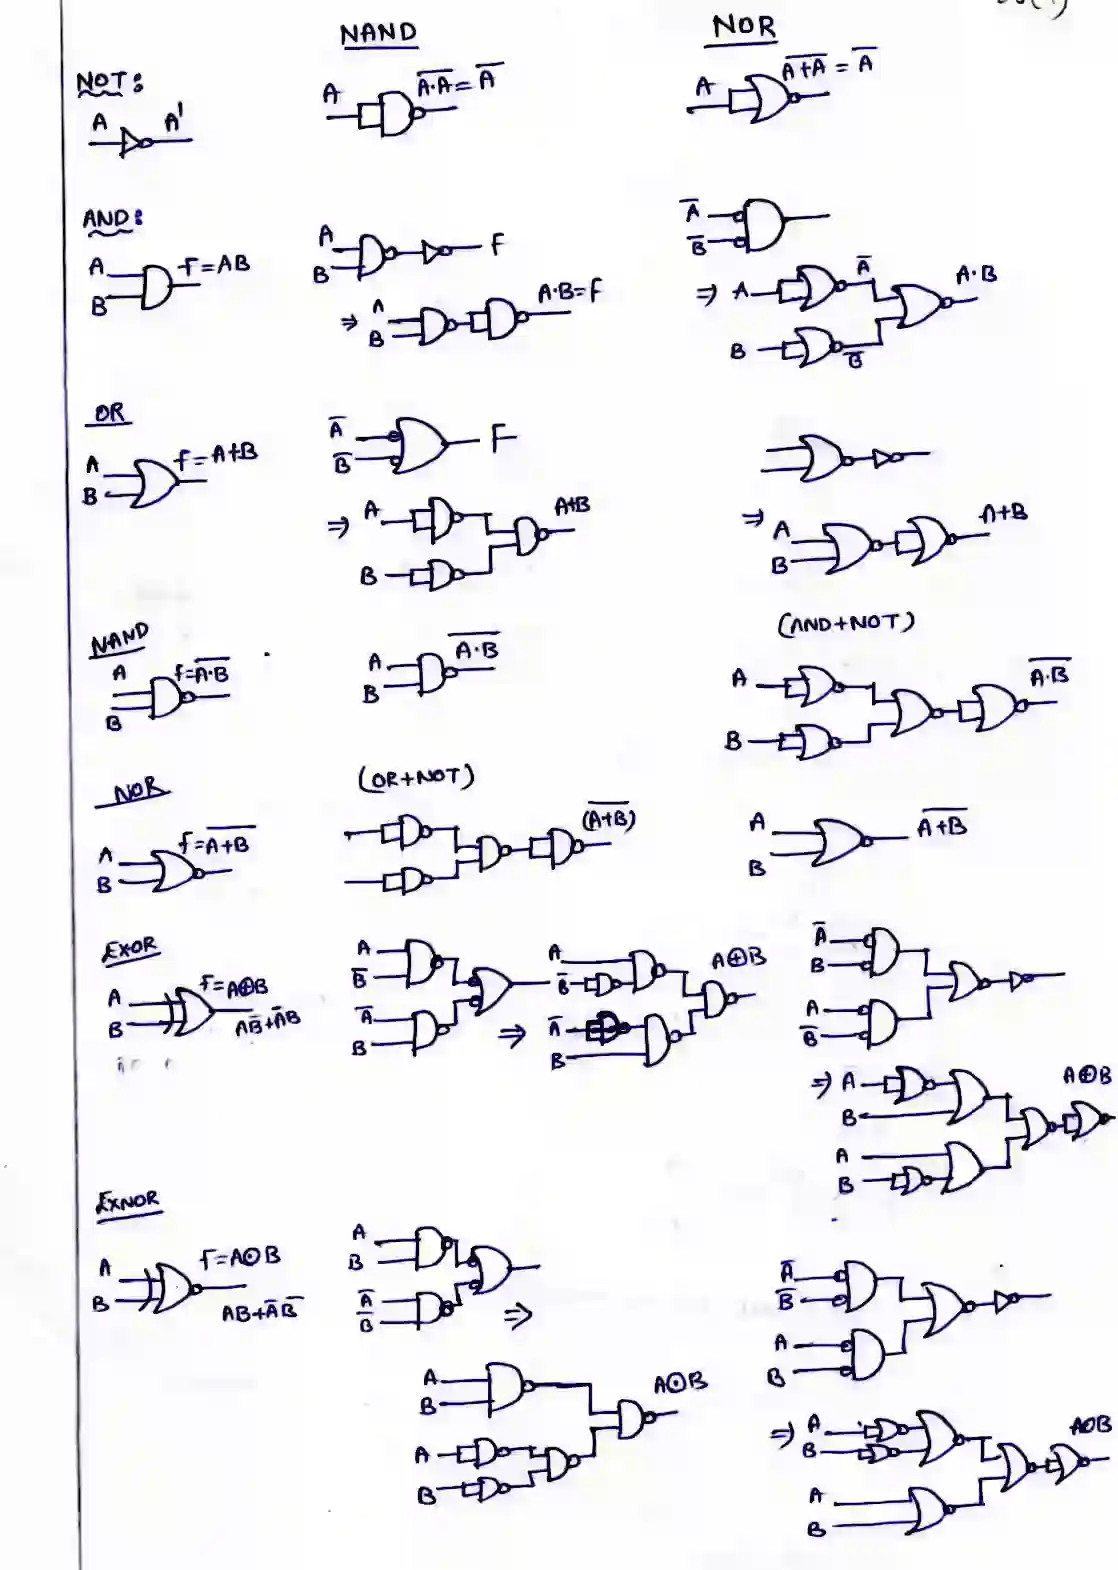 NAND NOR
NOT:
A A'
A \overline{A·A} = \overline{A}
A \overline{A+A} = \overline{A}
AND:
A B f=AB
A B F
⇒ A B A·B=F
\overline{A} \overline{B}
⇒ A \overline{A} B \overline{B} A·B
OR
A B f=A+B
\overline{A} \overline{B} F
⇒ A B A+B
⇒ A B A+B
NAND
A B f=\overline{A·B}
A B \overline{A·B}
(AND+NOT)
A B \overline{A·B}
NOR
A B f=\overline{A+B}
(OR+NOT)
(\overline{A+B})
A B \overline{A+B}
EXOR
A B f=A⊕B
A\overline{B}+\overline{A}B
A \overline{B} \overline{A} B
⇒ A \overline{B} \overline{A} B A⊕B
\overline{A} B A \overline{B}
⇒ A B A B A⊕B
EXNOR
A B f=A⊙B
AB+\overline{A}\overline{B}
A B \overline{A} \overline{B} ⇒
A B A B A⊙B
\overline{A} \overline{B} A B
⇒ A B A B A⊙B